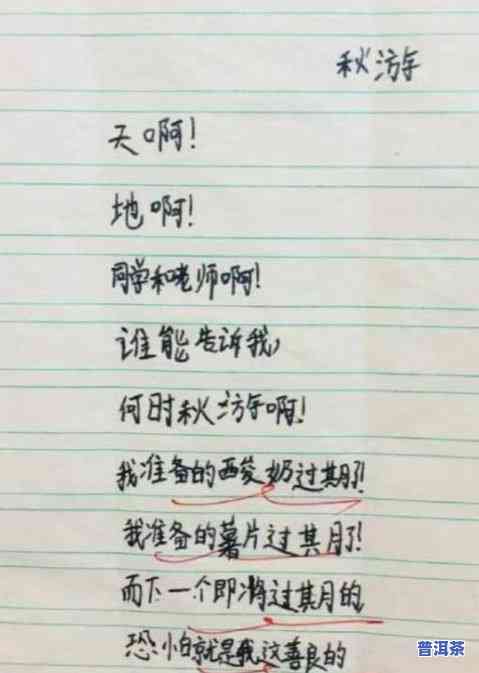 秋游
天啊！
地啊！
同学和老师啊！
谁能告诉我，
何时秋游啊！
我准备的酸奶过期了！
我准备的薯片过期了！
而下一个即将过期的
恐怕就是我这善良的
普洱茶